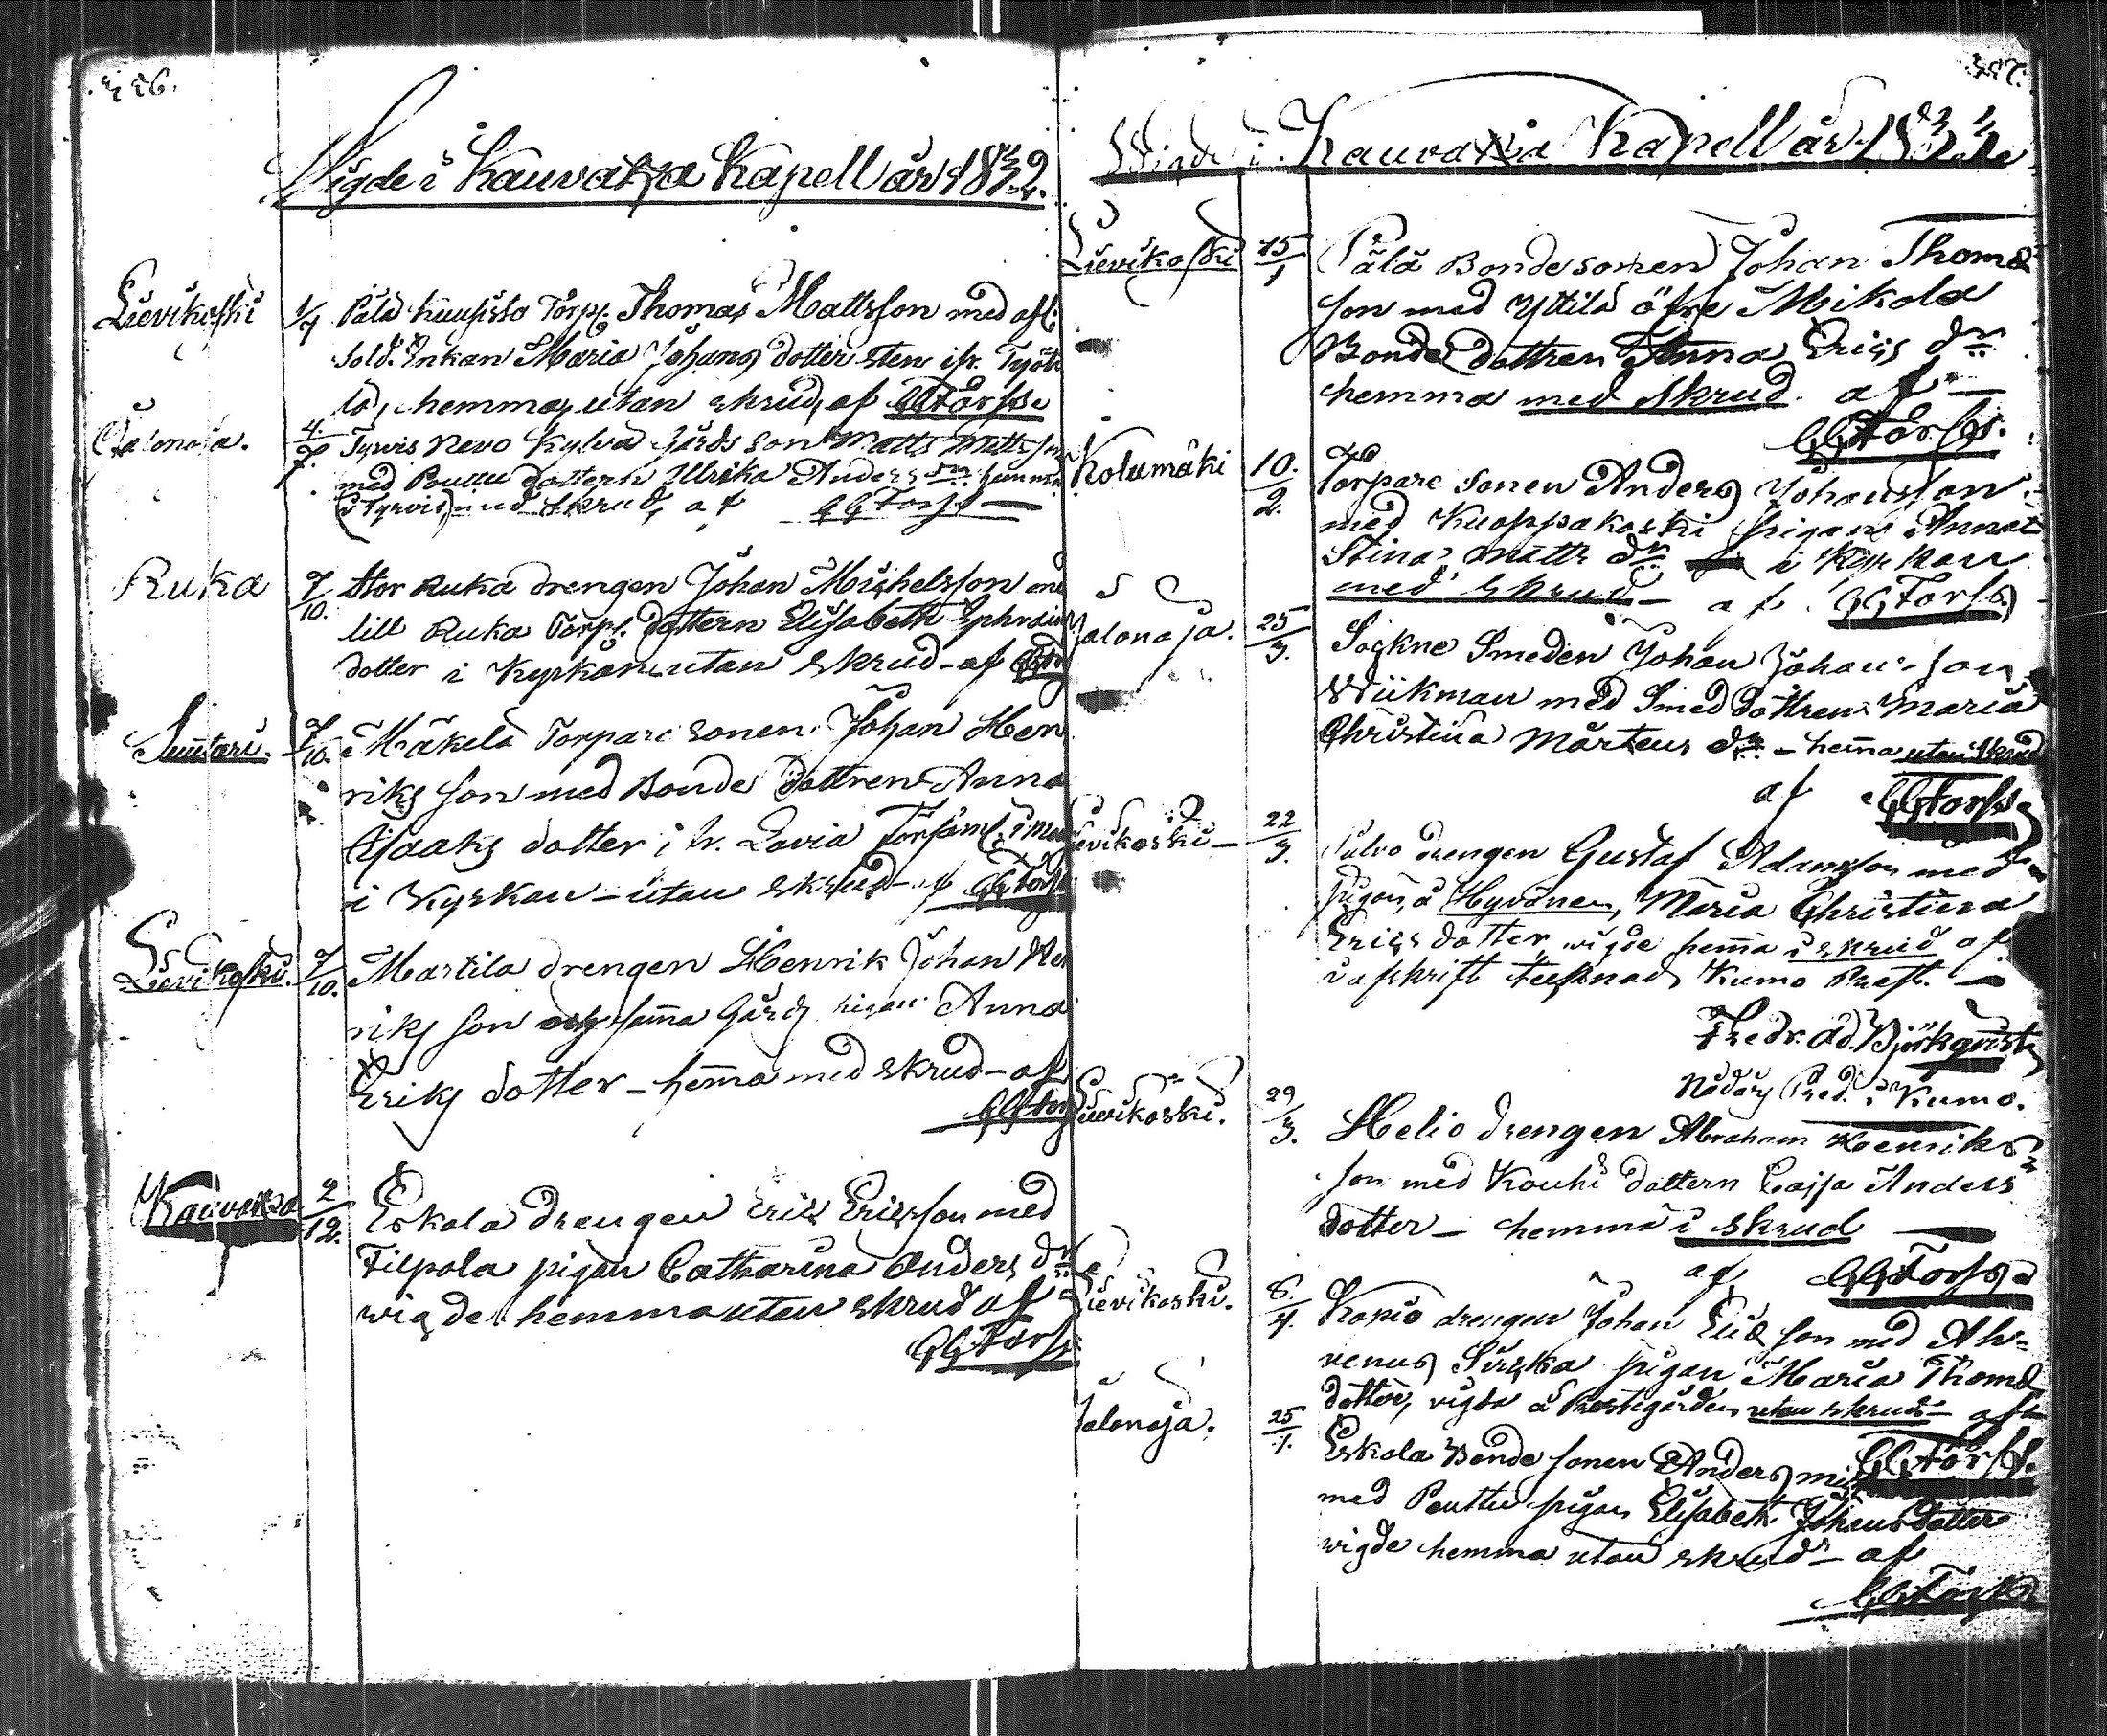 Wigde i Kauvatza Kapell år 1832.
Lievikoski 1/7 Pälä Kuusisto Torp. Thomas Mattsson med afl:
Sold. Enkan Maria Johans dotter Sten ifr. Työti
lä, hemma, utan skrud, af GGForss
Jalonoja. 4./7. Tyrvis Nevo Kylvä Gårds Son Matts Matts son
med Pouttu dottern Ulrika Anders dr hemma
(i Tyrvis) med skrud, af GGForss
Ruka 7/10. Stor Ruka drengen Johan Michelsson med
lill Ruka Torp. dottern Elisabeth Ephraims
dotter i Kyrkan utan skrud - af
Suntari. 7/10. Mäkelä Torpare sonen Johan Hen
riks son med Bonde dottren Anna
Isaaks dotter i fr. Lavia
i Kyrkan - utan skrud - af GGForss
Lievikoski. 7/10. Martila drengen Henrik Johan Hen
riks son och samma Gårds pigan Anna
Eriks dotter - hemma med skrud - af
GGForss
Kauvatza 2/12. Eskola drengen Eric Ericsson med
Filpola pigan Catharina Anders dr
wigde hemma utan skrud af
GGForss
Wigde i Kauvatza Kapell år 1832.
Lievikoski 15/1 Pälä Bondesonen Johan Thomæ
son med Yttilä öfre Mikola
Bonde dottren Anna Erics dr
hemma med skrud. af
GGForss.
Kolumäki 10./2. Torpare sonen Anders Johansson
med Kuoppakoski pigan Anna
Stina Matts dr i Kyrkan
med skrud - af GGForss
Jalonoja. 25/3. Sockne Smeden Johan Johansson
Wiikman med Smed dottren Maria
Christina Mårtens dr - hemma utan skrud
af GGForss
Lievikoski - 22/3. drengen Gustaf Adamsson med
pigan, å Hyvönen, Maria Christina
Erics dotter wigde hemma i skrud af
Kumo Prest.
Fredr. Ad. Björkqvist
Nådårs Pred. i Kumo.
Lievikoski. 29/3. Helio drengen Abraham Henriks
son med Kouhi dottern Cajsa Anders
dotter - hemma i skrud
af GGForss
Lievikoski. 8./4. Kopio drengen Johan son med Ah=
venus Sirkka pigan Maria Thomæ
dotter, vigda å Prestgården utan skrud - af
GGForss.
Jalonoja. 25/4. Eskola Bonde sonen Anders
med Pouttu pigan Elisabeth Johans dotter
wigde hemma utan skrud - af
GGForss